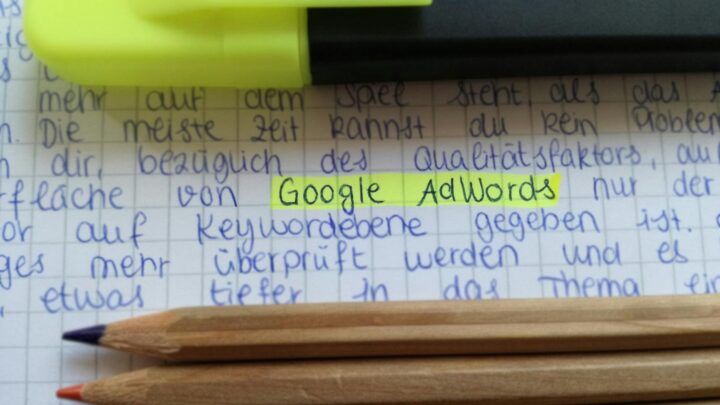 mehr auf dem Spiel steht, als das
Die meiste Zeit kannst du kein Problem
dir, bezüglich des Qualitätsfaktors, auf
von Google AdWords nur der
auf Keywordebene gegeben ist.
mehr überprüft werden und es
etwas tiefer in das Thema ein